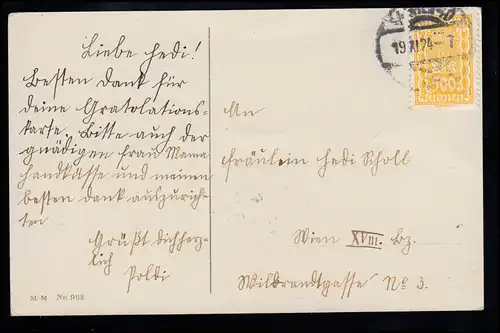 Liebe Hedi!
Besten Dank für
deine Gratolations-
karte. Bitte auch der
gnädigen Frau Mama
Handküsse und meinen
besten Dank auszurich-
ten
Grüßt dich herz-
lich
Poldi
M. M Nr. 992
19.XI.24
500
An
Fräulein Hedi Scholl
Wien XVIII. Bz.
Wilbrandtgasse No 3.